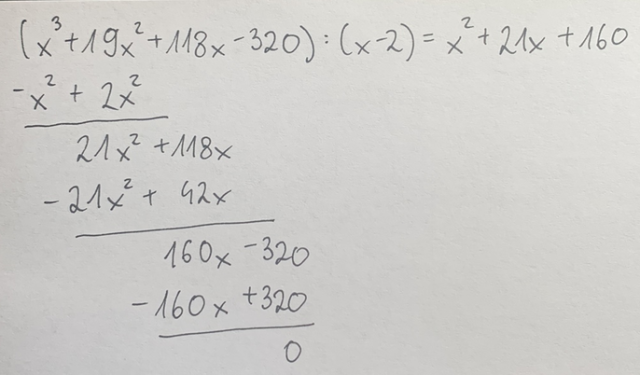 (x³+19x²+118x-320):(x-2)=x²+21x+160
-x²+2x²
21x²+118x
-21x²+42x
160x-320
-160x+320
0